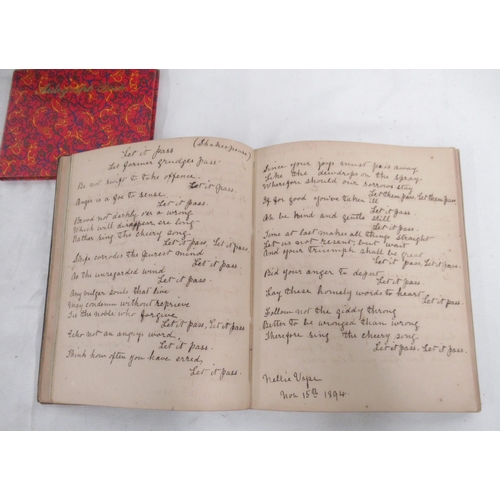 Autograph Album
Let it pass (Shakespeare)
Let former grudges pass.
Be not swift to take offence.
Let it pass.
Anger is a foe to sense
Let it pass.
Brood not darkly o'er a wrong
Which will disappear ere long
Rather sing the cheery song
Let it pass, Let it pass
Strife corrodes the purest mind
Let it pass.
As the unregarded wind
Let it pass.
Any vulgar souls that live
May condemn without reprieve
Tis the noble who forgive
Let it pass, Let it pass
Echo not an angry word,
Let it pass.
Think how often you have erred,
Let it pass.
Since your joys must pass away
Like the dewdrops on the spray
Wherefore should our sorrows stay
Let them pass. Let them pass.
If for good you've taken ill
Let it pass.
Oh be kind and gentle still
Let it pass.
Time at last makes all things straight
Let us not resent, but wait
And your triumph shall be great
Let it pass. Let it pass.
Bid your anger to depart
Let it pass
Lay these homely words to heart
Let it pass.
Follow not the giddy throng
Better to be wronged than wrong
Therefore sing the cheery song.
Let it pass. Let it pass.
Nellie
Nov 15th 1894